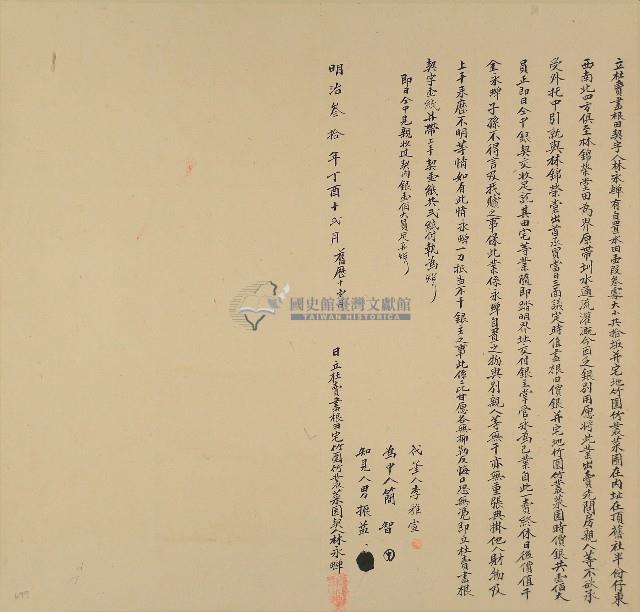 立杜賣盡根田契字人林永蟬有自置水田壹段叁零大小共拾坵并宅地竹圍竹叢菜園在內址在頂舊社半份仔東
西南北四方俱至林錦榮堂田為界原帶圳水通流灌溉今因乏銀別用愿將此業出賣先問房親人等不欲承
受外托中引就與林錦榮堂出首承買當日三面議定時值盡根田價銀并宅地竹圍竹叢菜園時價銀共壹佰大
員正即日仝中銀契交收足訖其田宅等業隨即踏明界址交付銀主掌管永為己業自此一賣終休日後價值千
金永蟬子孫不得言及找贖之事保此業係永蟬自置之物與別親人等無干亦無重張典掛他人財物及
上手來歷不明等情如有此情永蟬一力抵當不干銀主之事此係二比甘愿各無抑勒反悔口恐無憑即立杜賣盡根
契字壹紙并帶上手契壹紙共弍紙付執為炤
即日仝中見親收過契內銀壹佰大員足再炤
代筆人李雅
為中人簡智
知見人男振益
明治叁拾年丁酉十弍月 舊歷十 月 日立杜賣盡根田宅竹圍竹叢菜園契人林永蟬
國史館臺灣文獻館
TAIWAN HISTORICA